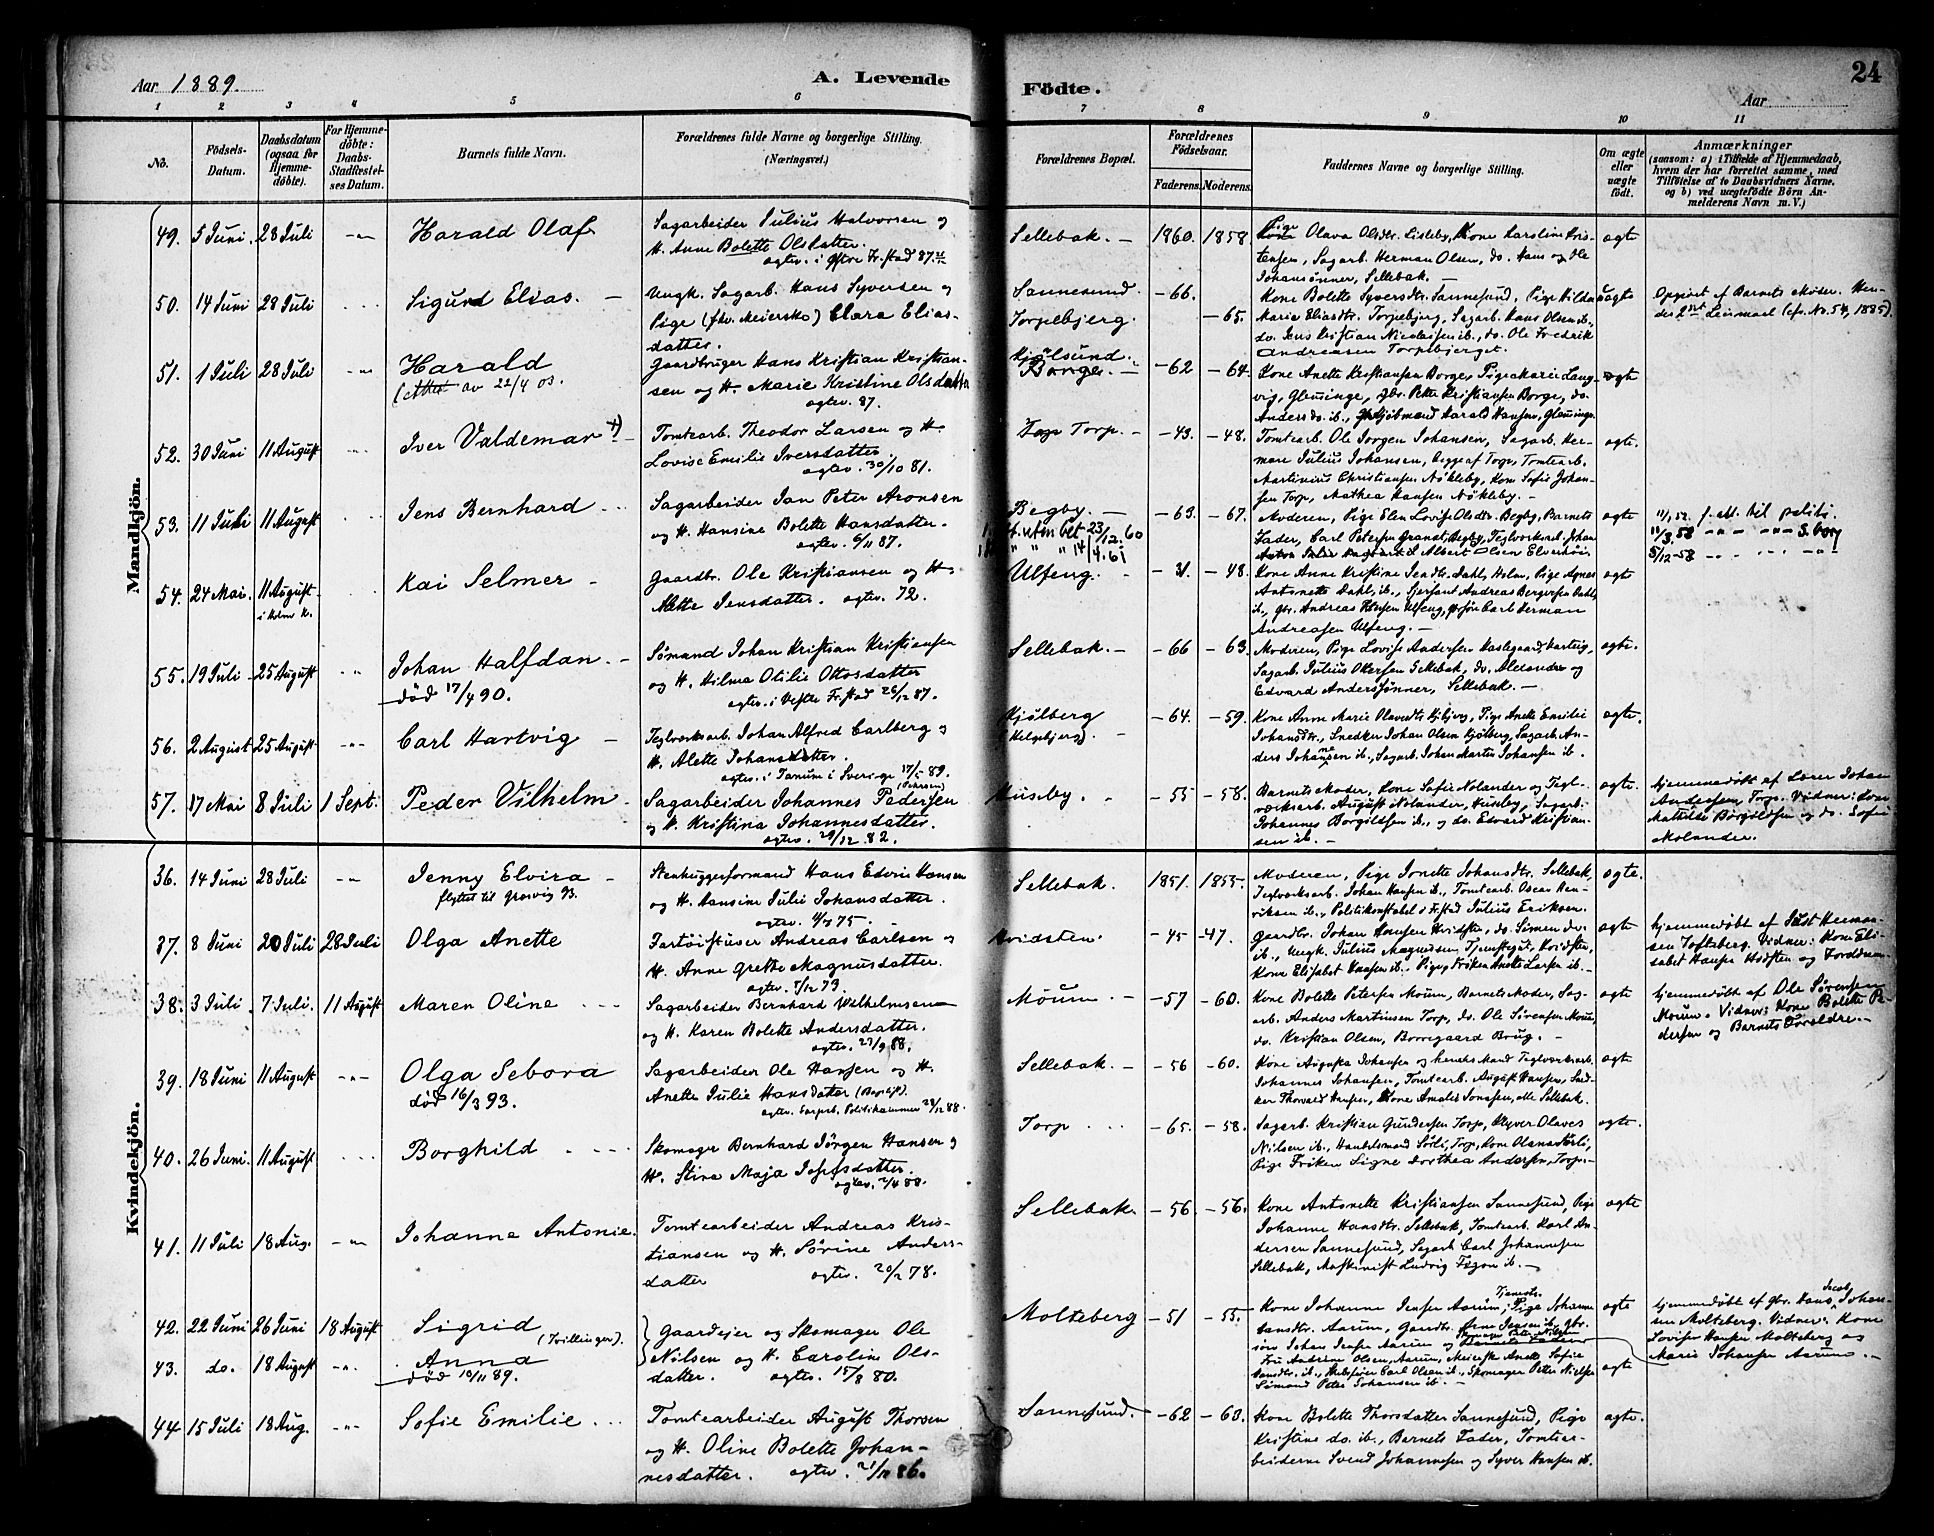 Aar 1889.
A. Levende
Födte.
24
Aar
1 2 3 4 5 6 7 8 9 10 11
No.
Födsels-Datum.
Daabsdatum (ogsaa for Hjemme-döbte).
For Hjemme-döbte: Daabs-Stadfæstel-ses Datum.
Barnets fulde Navn.
Forældrenes fulde Navne og borgerlige Stilling.
(Næringsvei.)
Forældrenes Bopæl.
Forældrenes Födselsaar.
Faderens. Moderens.
Faddernes Navne og borgerlige Stilling.
Om ægte eller uægte födt.
Anmærkninger
(saasom: a) i Tilfælde af Hjemmedaab,
hvem der har forrettet samme, med
Tilföielse af to Daabsvidners Navne,
og b) ved uægtefödte Börn An-
melderens Navn m. V.)
Mandkjön.
49. 5 Juni. 28 Juli -"- Harald Olaf
Sagarbeider Julius Halvorsen og
H. Anne Bolette Olsdatter.
Sellebak. - 1860. 1858
Pige Olava Olsdtr. Lisleby, Kone Karoline Kris-
tensen, Sagarb. Herman Olsen, do. Hans og Ole
Johansønner, Sellebak. -
ægte
50. 14 Juni 28 Juli Sigurd Elias. -
Ungk. Sagarb. Hans Syversen og
Pige (fhv. Meierske) Clara Elias-
datter.
Sannesund. - 66.
Torpebjerg. - 65.
Kone Bolette Syversdtr. Sannesund, Pige Hilda
Maria Eliasdtr. Torpebjerg, Sagarb. Hans Olsen ib.,
do. Jens Kristian Nicolaisen ib., do. Ole Fredrik
Andreasen Torpebjerget.
uægte
Opgivet af Barnets Moder. Hen-
des 2det Leiermaal (cfr. No. 54, 1885).
51. 1 Juli 28 Juli -"- Harald
av 22/4 03.
Gaardbruger Hans Kristian Kristian-
sen og H. Marie Kristine Olsdatter
ægtev. 87.
Kjølsund.
Borge. - - 62 - 64.
Kone Anette Kristiansen Borge, Pige Marie Lang-
vig, Glemminge, Gbr. Petter Kristiansen Borge, do.
Anders do. ib., Kjøbmand Harald Hansen, Glemminge
ægte
52. 30 Juni 11 August -"- Iver Valdemar +)
Tomtearb. Theodor Larsen og H.
Lovise Emilie Iversdatter.
ægtev. 30/10 81.
Torp. - - 43. - 48.
Tomtearb. Ole Jørgen Johansen, Sagarb. Her-
man Julius Johansen, begge af Torp, Tomtearb.
Martinius Christiansen Nøkleby, Kone Sofie Johan-
sen Torp, Mathea Hansen Nøkleby. -
ægte.
53. 11 Juli 11 August Jens Bernhard
Sagarbeider Jan Peter Aronsen
og H. Hansine Bolette Hansdatter.
ægtev. 6/11 87.
Begby. - - 63. - 67.
Moderen, Pige Elen Lovise Olsdtr. Begby, Barnets
Fader, Carl Petersen Granat, Begby, Teglverksarb. Johan
Albert Olsen Elverhøi
ægte
54. 24 Mai. 11 August
i Holms K. Kai Selmer -
Gaardbr. Ole Kristiansen og H.
Alette Jensdatter. ægtev. 72.
Ulfeng. - - 31. - 48.
Kone Anne Kristine Jensdtr. Dahl, Holm, Pige Agnes
Antonette Dahl, ib.,
ib., gbr. Andreas Ulfeng, Carl Herman
Andreasen Ulfeng. -
ægte
55. 19 Juli 25 August -"- Johan Halfdan. -
död 17/4 90.
Sømand Johan Kristian Kristiansen
og H. Hilma Otilie Ottosdatter
ægtev. i Vestre Fr.stad 26/12 87.
Sellebak. - - 66 - 63.
Moderen, Pige Lovise Andersen Haslegaard, Varteig,
Sagarb. Julius Ottersen Sellebak, do. Alexander og
Edvard Anderssønner, Sellebak. -
ægte.
56. 2 August 25 August -"- Carl Hartvig -
Teglverksarb. Johan Alfred Carlberg og
H. Alette Johansdatter.
ægtev. i Tanum i Sverige 17/5 89.
Kjølberg
- 64. - 59.
Kone Anne Marie Olavesdtr. Kjølberg, Pige Anette Emilie
Johansdtr., Snedker Johan Olsen Kjølberg, Sagarb. An-
ders Johannesen ib., Sagarb. Johan Martin Johansen ib.
ægte.
57. 17 Mai 8 Juli 1 Sept. Peder Vilhelm
Sagarbeider Johannes Pedersen
og H. Kristina Johannesdatter.
ægtev. 29/12 82.
Huseby. - 55 - 58.
Barnets Moder, Kone Sofie Nolander og Tegl-
verksarb. August Nolander, Huseby, Sagarb.
Johannes Borgildsen ib., og do. Edvard Kristian-
sen ib. -
ægte.
hjemmedøbt af Lærer Johan
Andersen, Torp. Vidner: Kone
Mathilde Borgildsen og do. Sofie
Molander.
Kvindekjön.
36. 14 Juni 28 Juli -"- Jenny Elvira -
flyttet til Græsvig 93.
Stenhuggerformand Hans Edvin Hansen
og H. Hansine Julie Johansdatter.
Sellebak. 1851. 1855.
Moderen, Pige Jonette Johansdtr. Sellebak,
Teglverksarb. Johan Hansen ib., Tomtearb. Oscar Hen-
riksen ib., Politikonstabel i Fr.stad Julius Eriksen.
ægte.
37. 8 Juni 20 Juli 28 Juli Olga Anette
Andreas Carlsen og
H. Anne Grethe Magnusdatter.
ægtev. 7/12 73.
Hvidsten. - 45 - 47.
Gaardbr. Johan Hansen Hvidsten, do. Simen do.
ib., Ungk. Julius Magnussen Hvidsten,
Kone Elisabet Hansen ib., Pige, Frøken Anette Larsen ib. -
ægte
hjemmedøbt af
Vidner: Kone Eli-
sabet Hansen Hvidsten og
38. 3 Juli. 7 Juli. 11 August Maren Oline
Sagarbeider Bernhard Wilhelmsen
og H. Karen Bolette Andersdatter.
ægtev. 23/9 88.
Moum. - - 57 - 60.
Kone Bolette Petersen Moum, Barnets Moder, Sag-
arb. Anders Martinsen Torp, do. Ole Sørensen Moum,
do. Kristian Olsen, Borregaard Brug. -
ægte
hjemmedøbt af Ole Sørensen
Moum. Vidner: Kone Bolette Pe-
dersen og Barnets Forældre. -
39. 18 Juni 11 August -"- Olga Sebora
död 16/3 93.
Sagarbeider Ole Hansen og H.
Anette Julie Hansdatter
Sellebak. - - 56 - 60.
Kone Augusta Johansen og hendes Mand Teglverksarb.
Johannes Johansen, Tomtearb. August Hansen, Sned-
ker Thorvald Hansen, Kone Amalie Jonassen, alle Sellebak.
ægte
40. 26 Juni. 11 August Borghild
Skomager Bernhard Jørgen Hansen og
H. Stina Maja Josefsdatter.
ægtev. 2/4 88.
Torp - 65. - 58.
Sagarb. Kristian Gundersen Torp, Olaves
Nilsen ib., Handelsmand Sørli, Torp, Kone Sørli,
Pige Frøken Signe Dorthea Andersen, Torp.
ægte.
41. 11 Juli 18 Aug. -"- Johanne Antonie.
Tomtearbeider Andreas Kris-
tiansen og H. Sørine Anders-
datter ægtev. 20/2 78.
Sellebak. - 56. - 56.
Kone Antonette Kristiansen Sannesund, Pige
Johanne Hansdtr. Sellebak, Tomtearb. Karl An-
dersen Sannesund, Sagarb. Carl Johannesen
Sellebak, Maskinist Ludvig ib. -
ægte
42. 22 Juni 26 Juni 18 August Sigrid
(Tvillinger).
43. do. 18 August -"- Anna
död 10/11 89.
Gaardejer og Skomager Ole
Nilsen og H. Caroline Ols-
datter. ægtev. 15/8 80.
Molteberg - 51 - 55.
Kone Johanne Jensen Aarum, Pige Johanne
Hansdtr. Aarum, Gaardbr. Arne Jensen ib., gbr.
søn Johan Jensen Aarum og
Fru Andrine Olsen, Aarum, Meierske Anette Sofie
Carl Olsen ib., Skomager Petter Nielsen
Sømand Peter Johansen ib. -
ægte
ægte
hjemmedøbt af gbr. Hans Jacob Johan-
sen Molteberg. Vidner: Kone
Lovise Hansen Molteberg og
Marie Johansen Aarum. -
44 15 Juli 18 Aug. -"- Sofie Emilie
Tomtearbeider August Thorsen
og H. Oline Bolette Johan-
nesdatter. ægtev. 21/11 86.
Sannesund. - 62 - 63.
Kone Bolette Thorsdatter Sannesund, Pige
Kristine do. ib., Barnets Fader, Tomtear-
beiderne Svend Johannesen og Syver Hansen ib.
ægte.